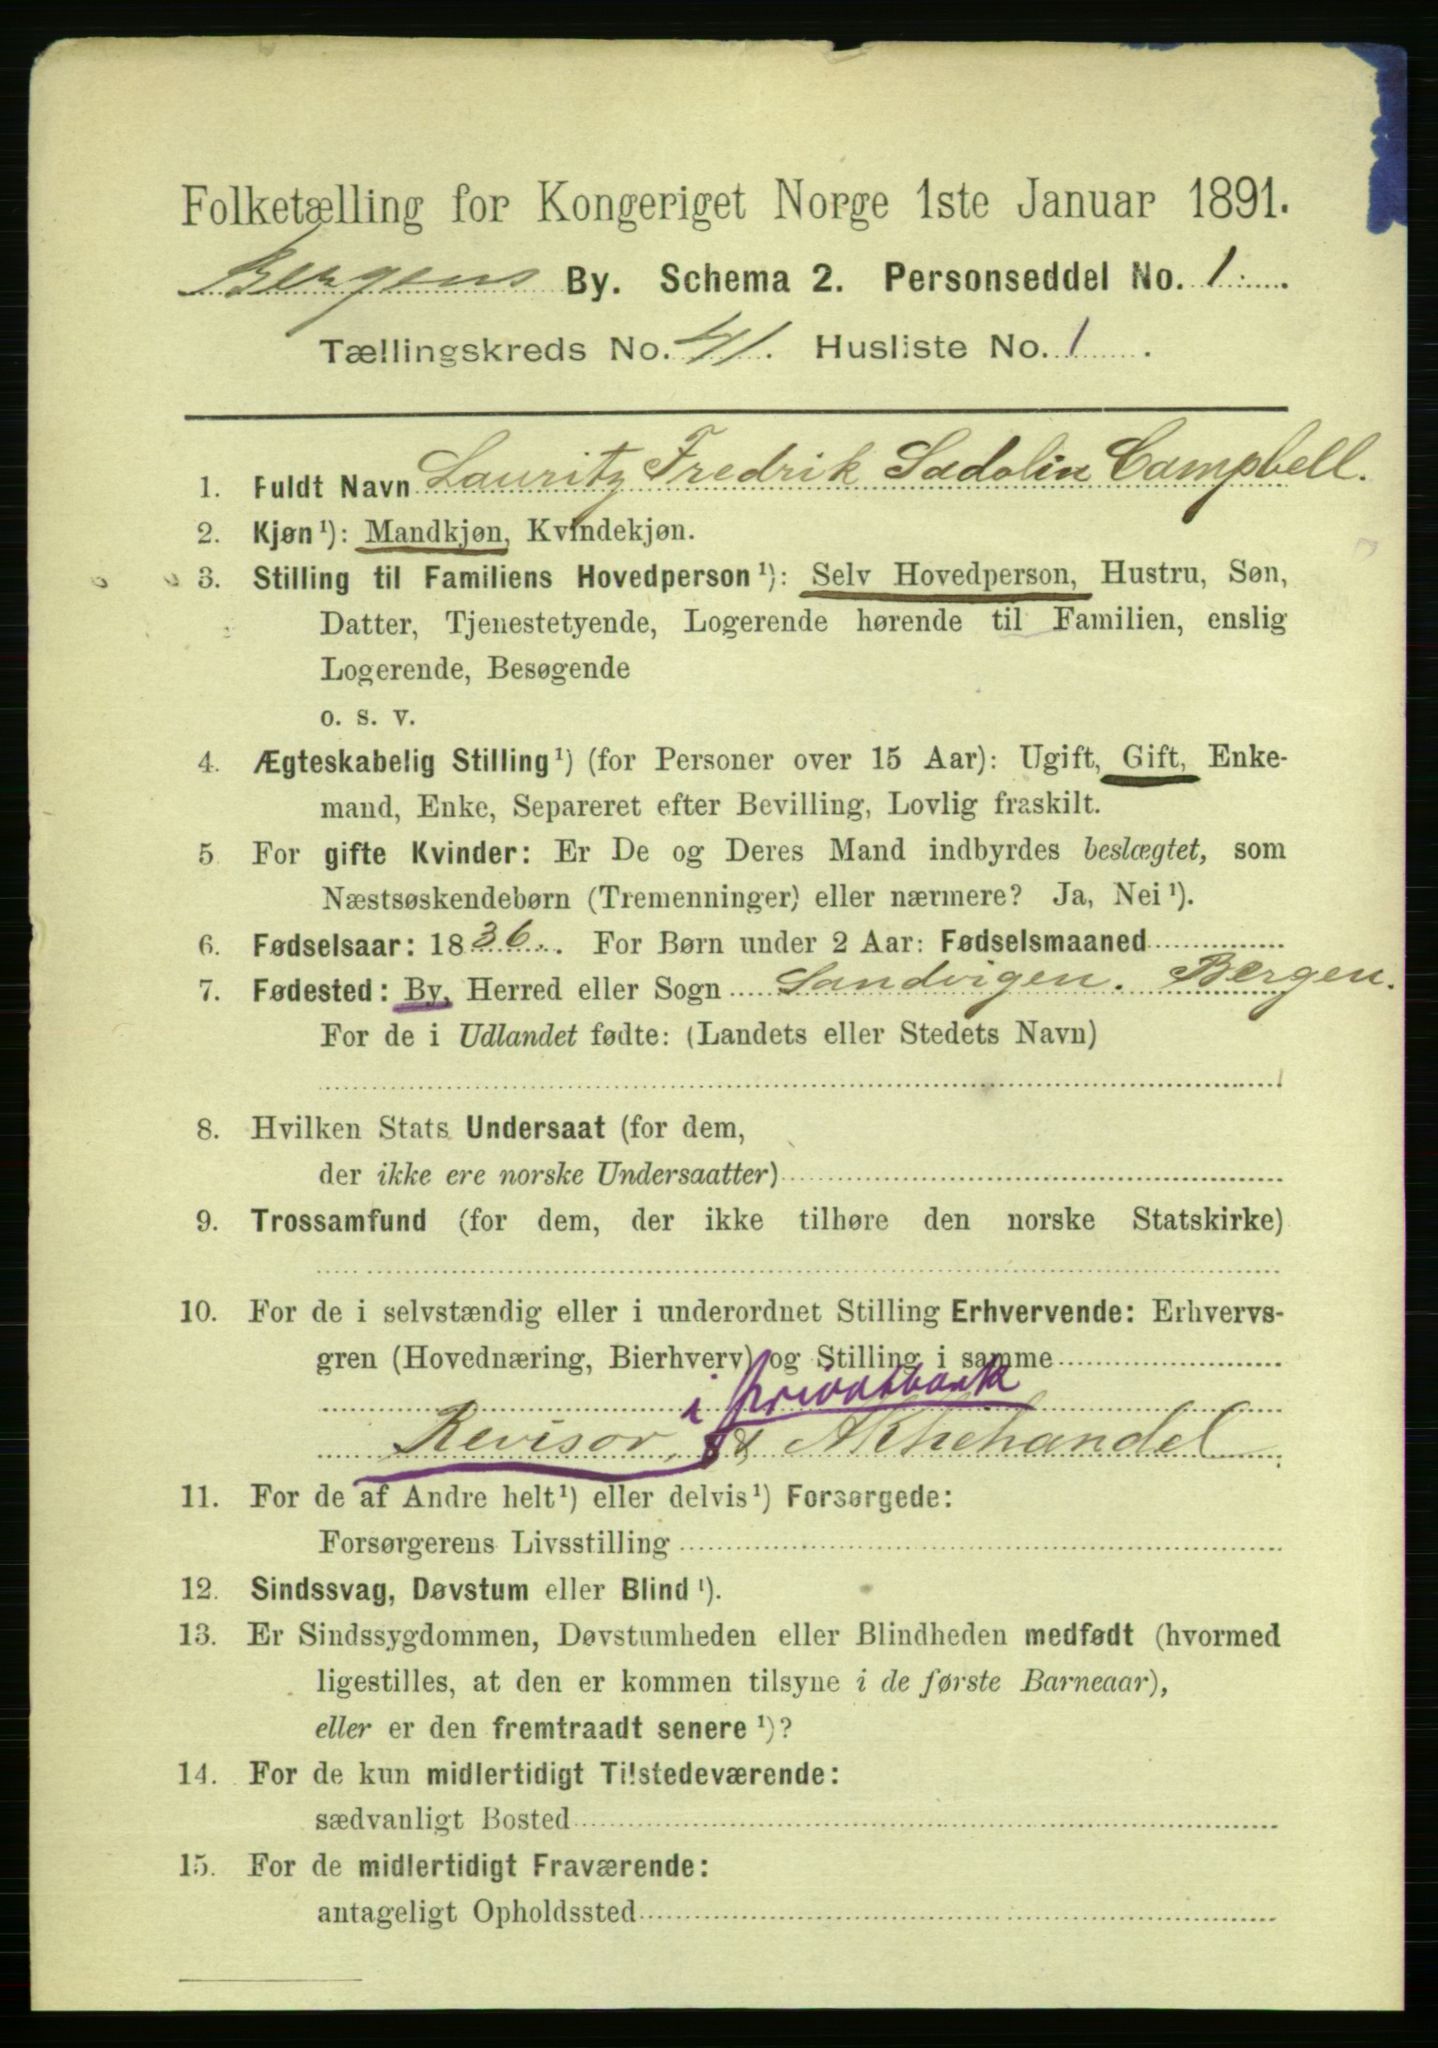 Folketælling for Kongeriget Norge 1ste Januar 1891.
Bergens By. Schema 2. Personseddel No. 1.
Tællingskreds No. 41. Husliste No. 1.
1. Fuldt Navn Lauritz Fredrik Sadolin Campbell.
2. Kjøn ¹): Mandkjøn, Kvindekjøn.
3. Stilling til Familiens Hovedperson ¹): Selv Hovedperson, Hustru, Søn,
Datter, Tjenestetyende, Logerende hørende til Familien, enslig
Logerende, Besøgende
o. s. v.
4. Ægteskabelig Stilling ¹) (for Personer over 15 Aar): Ugift, Gift, Enke-
mand, Enke, Separeret efter Bevilling, Lovlig fraskilt.
5 For gifte Kvinder: Er De og Deres Mand indbyrdes beslægtet, som
Næstsøskendebørn (Tremenninger) eller nærmere? Ja, Nei ¹).
6. Fødselsaar: 1836. For Børn under 2 Aar: Fødselsmaaned
7. Fødested: By, Herred eller Sogn Sandvigen. Bergen.
For de i Udlandet fødte: (Landets eller Stedets Navn)
8. Hvilken Stats Undersaat (for dem,
der ikke ere norske Undersaatter)
9. Trossamfund (for dem, der ikke tilhøre den norske Statskirke)
10. For de i selvstændig eller i underordnet Stilling Erhvervende: Erhvervs-
gren (Hovednæring, Bierhverv) og Stilling i samme
i privatbank
Revisor, & Aktiehandel
11. For de af Andre helt ¹) eller delvis ¹) Forsørgede:
Forsørgerens Livsstilling
12. Sindssvag, Døvstum eller Blind ¹).
13. Er Sindssygdommen, Døvstumheden eller Blindheden medfødt (hvormed
ligestilles, at den er kommen tilsyne i de første Barneaar),
eller er den fremtraadt senere ¹)?
14. For de kun midlertidigt Tilstedeværende:
sædvanligt Bosted
15. For de midlertidigt Fraværende:
antageligt Opholdssted